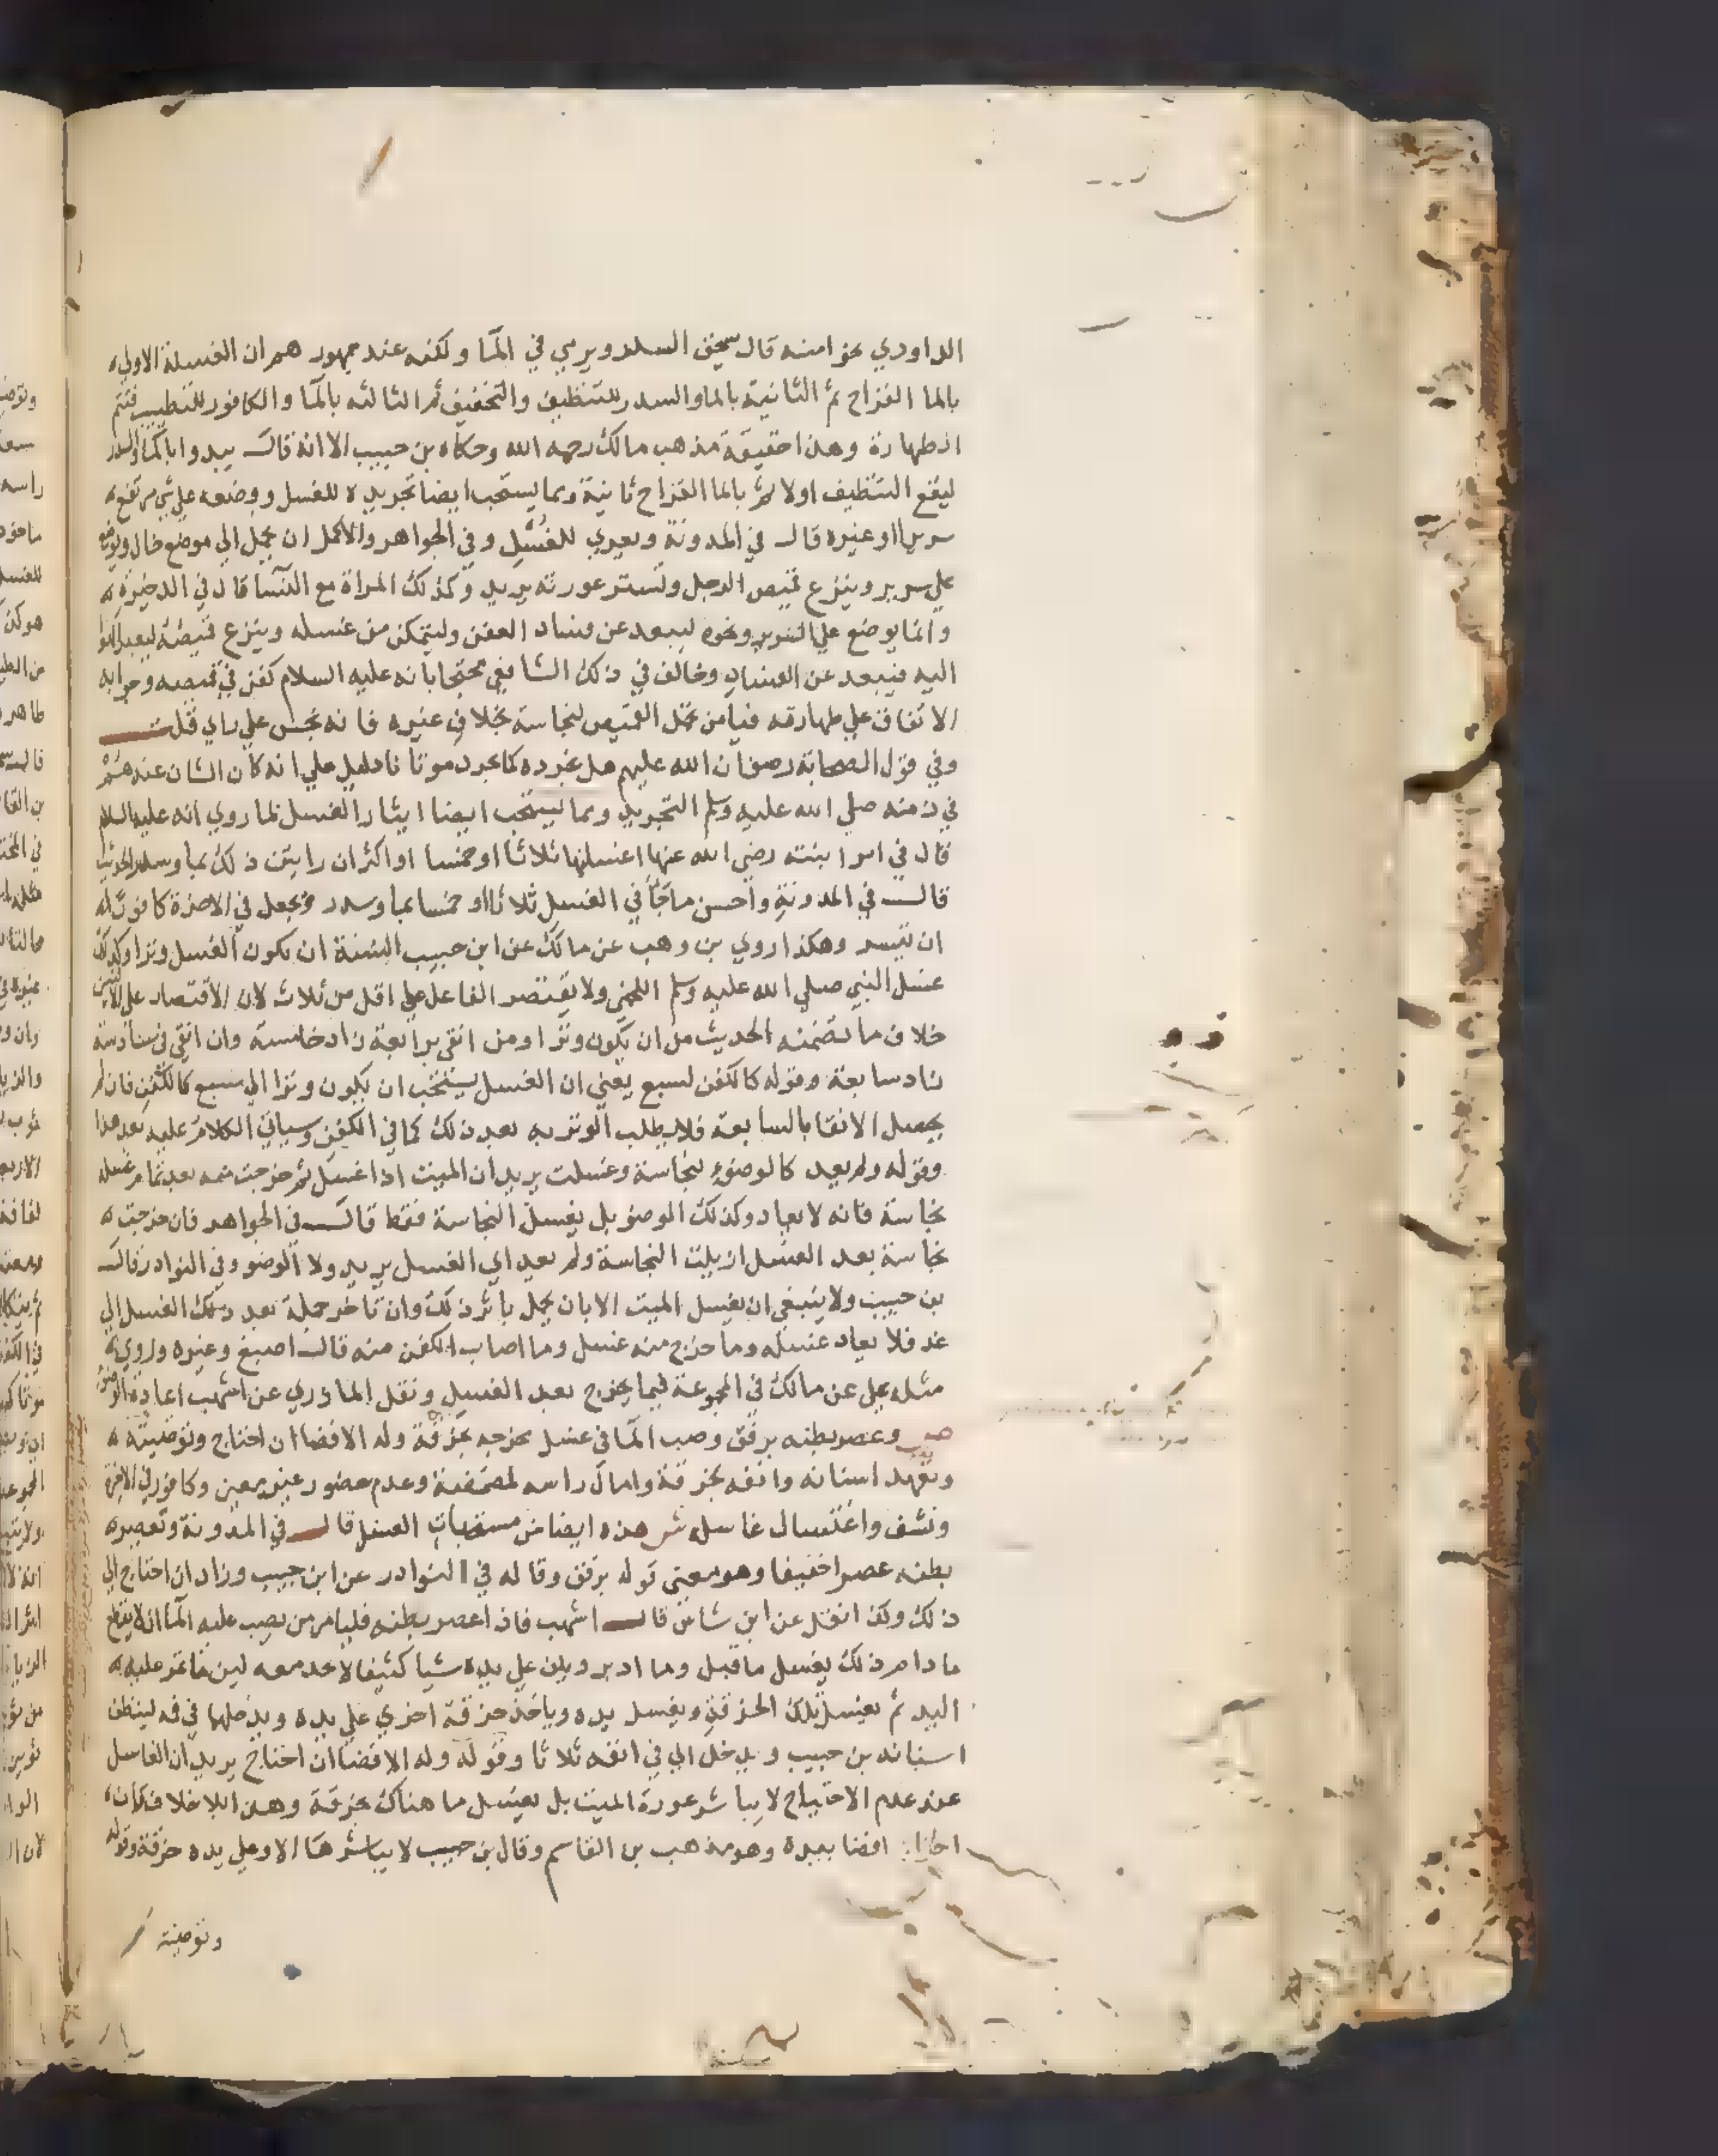 الداودي نحوا منه قال سحنون السدر ويرمي في الما ولكنه عند جمهور هم ان الغسلة الاولي
بالما القراح ثم الثانية بالما والسدر للتنظيف والتخفيف ثم الثالثه بالما والكافور للتطييب فتتم
الطهارة وهذا حقيقة مذهب مالك رحمه الله وحكاه بن حبيب الا انه قال يبدوا بالما والسدر
ليقع التنظيف اولا ثم بالما القراح ثانية ومما يستحب ايضا تجريده للغسل ووضعه علي شي مرتفع
سريرا اوغيره قال في المدونة ويعري للغسل وفي الجواهر والاكمل ان يحمل الي موضع خال ويوضع
علي سرير وينزع قميص الرجل وتستر عورته يريد وكذلك المراة مع النسا قال في الذخيرة
وانما يوضع علي السرير ونحوه ليبعد عن فساد العفن وليتمكن من غسله وينزع قميصه ليعبد الهوا
اليه فيبعد عن الفساد وخالف في ذلك الشافعي محتجا بانه عليه السلام كفن في قميصه وجوابه
الاتفاق علي طهارته فيامن محمل القميص لنجاسة بخلاف غيره فانه نجس علي راي قلت
وفي قول الصحابة رضوان الله عليهم هل نجرده كما نجرد موتانا دليل علي انه كان الشان عندهم
في زمنه صلي الله عليه وسلم التجريد ومما يستحب ايضا ايثار الغسل لما روي انه عليه السلام
قال في امر ابنته رضي الله عنها اغسلنها ثلاثا او خمسا او اكثر ان رايتن ذلك بما وسدر الحديث
قال في المدونة واحسن ما جا في الغسل ثلاثا او خمسا بما وسدر ويجعل في الاخرة كافور له
ان تيسر وهكذا روي بن وهب عن مالك عن ابن حبيب السنة ان يكون الغسل وترا وكذلك
غسل النبي صلي الله عليه وسلم اللخمي ولا يقتصر الفاعل علي اقل من ثلاث لان الاقتصار علي الاثنين
خلاف ما تضمنه الحديث من ان يكون وترا ومن انقي برابعة زاد خامسة وان انقي في سادسة
زاد سابعة وقوله كالكفن لسبع يعني ان الغسل يستحب ان يكون وترا الي سبع كالكفن فان لم
يحصل الانقا بالسابعة فلا يطلب الوتر به بعد ذلك كما في الكفن وسياتي الكلام عليه بعد هذا
وقوله ولم يعد كالوضوء لنجاسة وغسلت يريد ان الميت اذا غسل ثم خرجت منه بعد تمام غسله
نجاسة فانه لا يعاد وكذلك الوضو بل يغسل النجاسة فقط قال في الجواهر فان خرجت
نجاسة بعد الغسل ازيلت النجاسة ولم يعد اي الغسل يريد ولا الوضو وفي النوادر قال
بن حبيب ولا ينبغي ان يغسل الميت الا بان يحمل باثر ذلك وان تاخر حمله بعد ذلك الغسل الي
غد فلا يعاد غسله وما خرج منه غسل وما اصاب الكفن منه قال اصبغ وغيره وروي
مثله علي عن مالك في المجموعة فيما يخرج بعد الغسل ونقل المازري عن اشهب اعادة الوضو
ص وعصر بطنه برفق وصب الما في غسل مخرجيه بخرقة وله الافضا ان احتاج وتوضيته
وتعهد اسنانه وانفه بخرقة وامال راسه لمضمضة وعدم حضور غير معين وكافور في الاخرة
ونشف واغتسال غاسله ش هذه ايضا من مستحبات الغسل قال في المدونة وتعصره
بطنه عصرا خفيفا وهو معني قوله برفق وقاله في النوادر عن ابن حبيب وزاد ان احتاج الي
ذلك وكذا نقل عن ابن شاس قال اشهب فاذا عصر بطنه فليامر من يصب عليه الما الا يقطع
ما دام ذلك يغسل ما قبل وما ادبر ويلف علي يده شيا كثيفا لا يجد معه لين ما تمر عليه
اليد ثم يغسل تلك الخرقة ويغسل يده وياخذ خرقة اخري علي يده ويدخلها في فه لينظف
اسنانه بن حبيب ويدخل الي في انفه ثلاثا وقوله وله الافضا ان احتاج يريد ان الغاسل
عند عدم الاحتياج لا يباشر عورة الميت بل يغسل ما هناك بخرقة وهذا بلا خلاف كان
افضا بيده وهو مذهب بن القاسم وقال بن حبيب لا يباشرها الا وعلي يده خرقة وقوله
وتوضيته